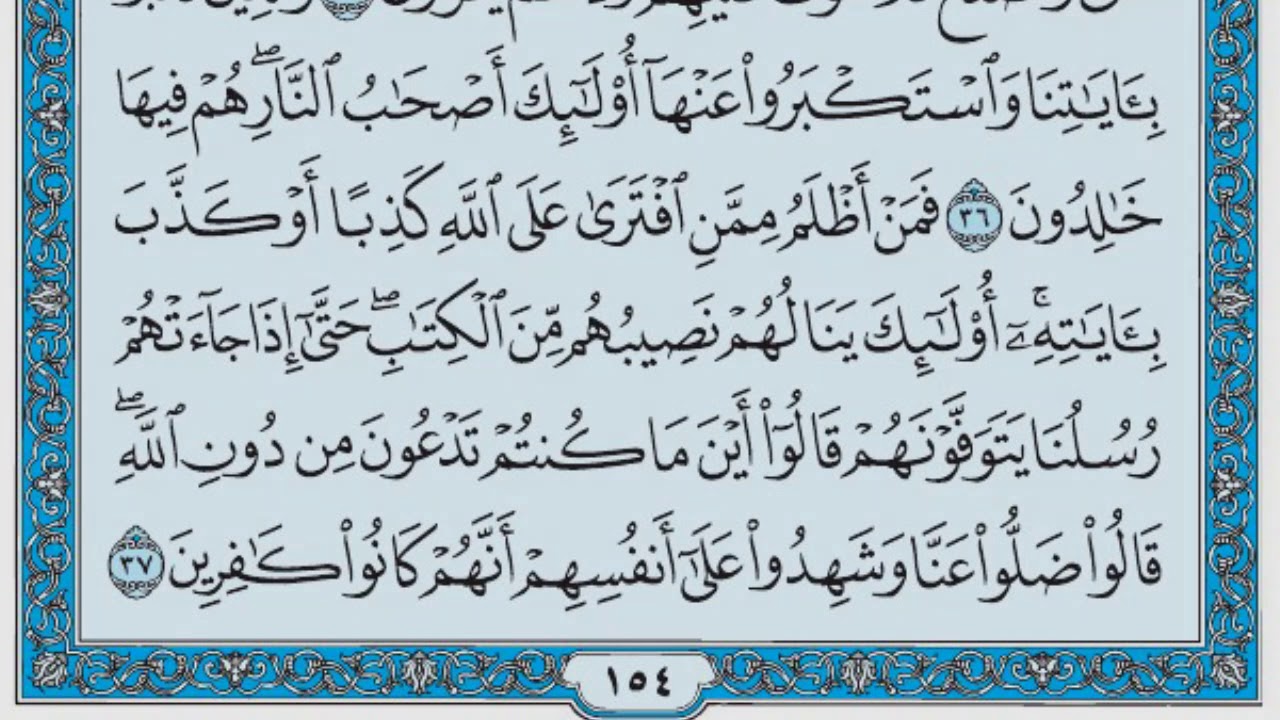 بِـَٔايَٰتِنَا وَٱسْتَكْبَرُوا۟ عَنْهَآ أُو۟لَٰٓئِكَ أَصْحَٰبُ ٱلنَّارِ ۖ هُمْ فِيهَا
خَٰلِدُونَ ٣٦ فَمَنْ أَظْلَمُ مِمَّنِ ٱفْتَرَىٰ عَلَى ٱللَّهِ كَذِبًا أَوْ كَذَّبَ
بِـَٔايَٰتِهِۦٓ ۚ أُو۟لَٰٓئِكَ يَنَالُهُمْ نَصِيبُهُم مِّنَ ٱلْكِتَٰبِ ۖ حَتَّىٰٓ إِذَا جَآءَتْهُمْ
رُسُلُنَا يَتَوَفَّوْنَهُمْ قَالُوٓا۟ أَيْنَ مَا كُنتُمْ تَدْعُونَ مِن دُونِ ٱللَّهِ ۖ
قَالُوا۟ ضَلُّوا۟ عَنَّا وَشَهِدُوا۟ عَلَىٰٓ أَنفُسِهِمْ أَنَّهُمْ كَانُوا۟ كَٰفِرِينَ ٣٧
١٥٤